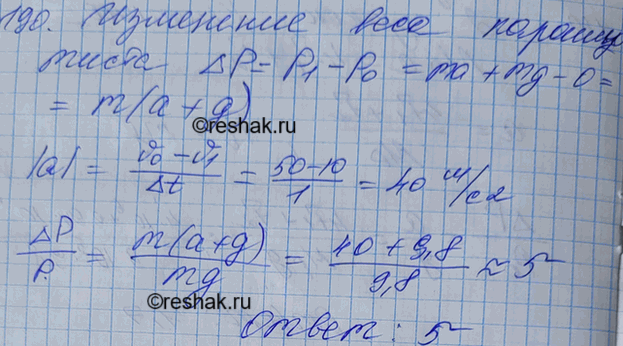 190. Изменение веса парашю
тиста ΔP = P₁ - P₀ = ma + mg - 0 =
= m(a + g)
©reshak.ru
|a| = (v₀ - v₁)/Δt = (50-10)/1 = 40 м/с2
ΔP/P = m(a+g)/mg = (40 + 9,8)/9,8 ≈ 5
©reshak.ru
Ответ: 5